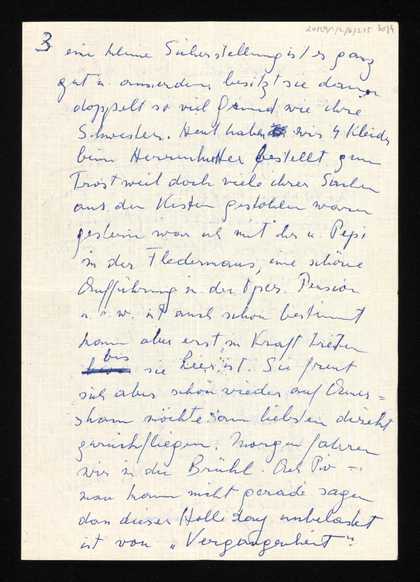 3
eine kleine Sicherstellung ist es ganz
gut u. ausserdem besitzt sie dann
doppelt so viel Grund wie ihre
Schwester. Heut haben wir 4 Kleider
beim Herrenhuter bestellt zum
Trost weil doch viele ihrer Sachen
aus den Kisten gestohlen waren
gestern war ich mit ihr u. Pepi
in der Fledermaus, eine schöne
Aufführung in der Oper. Pension
u.s.w. ist auch schon bestimmt
kann aber erst in Kraft treten
bis sie hier ist. Sie freut
sich aber schon wieder auf Amers=
ham möchte am liebsten direkt
zurückfliegen. Morgen fahren
wir in die Brühl. Also
man kann nicht gerade sagen
dass dieser Holleday unbelastet
ist von „Vergangenheit".